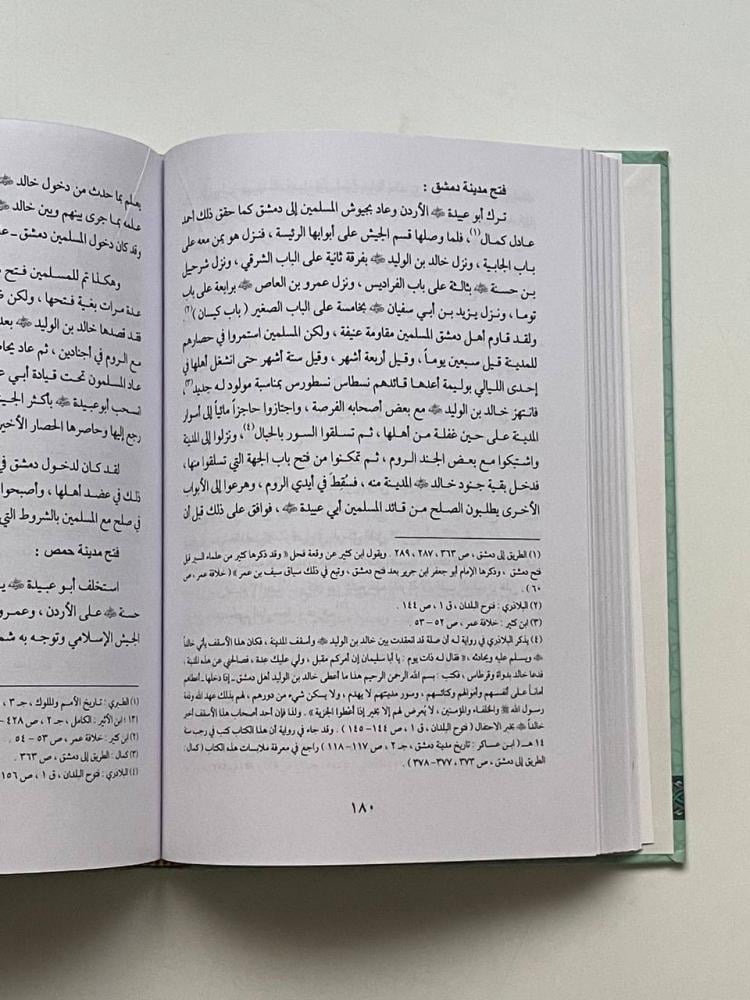 فتح مدينة دمشق :
ترك أبو عبيدة ﷺ الأردن وعاد بجيوش المسلمين إلى دمشق كما حقق ذلك أحمد
عادل كمال(١)، فلما وصلها قسم الجيش على أبوابها الرئيسة ، فنزل هو بمن معه على
باب الجابية ، ونزل خالد بن الوليد ﷺ بفرقة ثانية على الباب الشرقي ، ونزل شرحبيل
بن حسنة ﷺ بثالثة على باب الفراديس ، ونزل عمرو بن العاص ﷺ برابعة على باب
توما ، ونزل يزيد بن أبي سفيان ﷺ بخامسة على الباب الصغير ( باب كيسان )(٢)
ولقد قاوم أهل دمشق المسلمين مقاومة عنيفة ، ولكن المسلمين استمروا في حصارهم
للمدينة قيل سبعين يوماً ، وقيل أربعة أشهر ، وقيل ستة أشهر حتى انشغل أهلها في
إحدى الليالي بوليمة أعدها قائدهم نسطاس نسطورس بمناسبة مولود له جديد(٣)،
فانتهز خالد بن الوليد ﷺ مع بعض أصحابه الفرصة ، واجتازوا حاجزاً مائياً إلى أسوار
المدينة على حين غفلة من أهلها ، ثم تسلقوا السور بالحبال(٤)، ونزلوا إلى المدينة
واشتبكوا مع بعض الجند الروم ، ثم تمكنوا من فتح باب الجهة التي تسلقوا منها ،
فدخل بقية جنود خالد ﷺ المدينة منه ، فسُقِطَ في أيدي الروم ، وهرعوا إلى الأبواب
الأخرى يطلبون الصلح من قائد المسلمين أبي عبيدة ﷺ ، فوافق على ذلك قبل أن
(١) الطريق إلى دمشق ، ص ٣٦٣ ، ٢٨٧ ، ٢٨٩ . ويقول ابن كثير عن وقعة فحل « وقد ذكرها كثير من علماء السير قبل
فتح دمشق ، وذكرها الإمام أبو جعفر ابن جرير بعد فتح دمشق ، وتبع في ذلك سياق سيف بن عمر » ( خلافة عمر ، ص
٦٠ ) .
(٢) البلاذري : فتوح البلدان ، ق ١ ، ص ١٤٤ .
(٣) ابن كثير : خلافة عمر ، ص ٥٢ – ٥٣ .
(٤) يذكر البلاذري في رواية له أن صلة قد انعقدت بين خالد بن الوليد ﷺ وأسقف المدينة ، فكان هذا الأسقف يأتي خالداً
ﷺ ويسلم عليه ويحادثه ، « فقال له ذات يوم : يا أبا سليمان إن أمركم مقبل ، ولي عليك عدة ، فصالحني عن هذه المدينة ،
فدعا خالد بدواة وقرطاس ، فكتب : بسم الله الرحمن الرحيم هذا ما أعطى خالد بن الوليد أهل دمشق ـ إذا دخلها ـ أعطاهم
أماناً على أنفسهم وأموالهم وكنائسهم ، وسور مدينتهم لا يهدم ، ولا يسكن شيء من دورهم ، لهم بذلك عهد الله وذمة
رسول الله ﷺ والخلفاء والمؤمنين ، لا يُعرض لهم إلا بخير إذا أعطوا الجزية » . ولذا فإن أحد أصحاب هذا الأسقف أخبر
خالداً ﷺ بخبر الاحتفال ( فتوح البلدان ، ق ١ ، ص ١٤٤ – ١٤٥ ) . وقد جاء في رواية أن هذا الكتاب كتب في رجب سنة
١٤ هـ ( ابن عساكر : تاريخ مدينة دمشق ، جـ ٢ ، ص ١١٧–١١٨ ) راجع في معرفة ملابسات هذه الكتاب ( كمال :
الطريق إلى دمشق ، ص ٣٧٣ ، ٣٧٧–٣٧٨ ) .
١٨٠
يعلم بما حدث من دخول خالد ﷺ
علمه بما جرى بينهم وبين خالد
وقد كان دخول المسلمين دمشق ـ
وهكذا تم للمسلمين فتح
عدة مرات بغية فتحها ، ولكن
فقد قصدها خالد بن الوليد ﷺ بعد
مع الروم في أجنادين ، ثم عاد
عاد المسلمون تحت قيادة أبي
انسحب أبو عبيدة ﷺ بأكثر
رجع إليها وحاصرها الحصار الأخير
لقد كان لدخول دمشق في
ذلك في عضد أهلها ، وأصبحوا
في صلح مع المسلمين بالشروط التي
فتح مدينة حمص :
استخلف أبو عبيدة ﷺ
حسنة ﷺ على الأردن ، وعمرو
الجيش الإسلامي وتوجه به
(١) الطبري : تاريخ الأمم والملوك ، جـ ٣ ،
١٣ ؛ ابن الأثير : الكامل ، جـ ٢ ، ص ٤٢٨
(٢) ابن كثير : خلافة عمر ، ص ٥٣ – ٥٤ .
(٣) كمال : الطريق إلى دمشق ، ص ٣٦٣ .
(٤) البلاذري : فتوح البلدان ، ق ١ ، ص ١٥٦